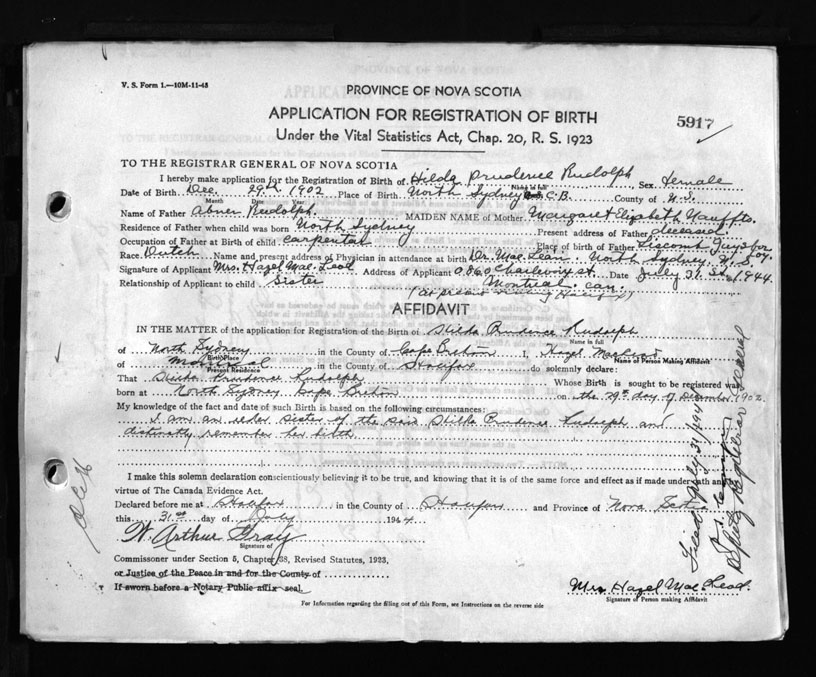 V. S. Form 1.—10M-11-43
PROVINCE OF NOVA SCOTIA
APPLICATION FOR REGISTRATION OF BIRTH
5917
Under the Vital Statistics Act, Chap. 20, R. S. 1923
TO THE REGISTRAR GENERAL OF NOVA SCOTIA
I hereby make application for the Registration of Birth of Hilda Prudence Rudolph Sex Female
Name in full
Date of Birth Dec. 29th 1902 Place of Birth North Sydney C.B. County of N.S.
Month Date Year
Name of Father Abner Rudolph MAIDEN NAME of Mother Margaret Elizabeth
Residence of Father when child was born North Sydney Present address of Father deceased
Occupation of Father at Birth of child carpenter Place of birth of Father Liscomb Guysbor
Race Dutch Name and present address of Physician in attendance at birth Dr. Mac Lean North Sydney, N.S.
Signature of Applicant Mrs. Hazel Mac Leod Address of Applicant Charlevoix st. Date July 31 st 1944.
Relationship of Applicant to child sister Montreal Can.
(at present
AFFIDAVIT
IN THE MATTER of the application for Registration of the Birth of Hilda Prudence Rudolph
Name in full
of North Sydney in the County of Cape Breton I, Hazel MacLeod
Birth Place Name of Person Making Affidavit
of Montreal in the County of Halifax do solemnly declare:
Present Residence
That Hilda Prudence Rudolph Whose Birth is sought to be registered was
born at North Sydney Cape Breton on the 29th day of December 1902
My knowledge of the fact and date of such Birth is based on the following circumstances:
I am an older sister of the said Hilda Prudence Rudolph and
distinctly remember her birth
I make this solemn declaration conscientiously believing it to be true, and knowing that it is of the same force and effect as if made under oath and
virtue of The Canada Evidence Act.
Declared before me at Halifax in the County of Halifax and Province of Nova Scotia
this 31st day of July 1944
W. Arthur Gray
Signature of
Commissioner under Section 5, Chapter 38, Revised Statutes, 1923,
or Justice of the Peace in and for the County of
If sworn before a Notary Public affix seal.
Mrs Hazel Mac Leod.
Signature of Person making Affidavit
For Information regarding the filling out of this Form, see Instructions on the reverse side
Filed July 31/44
Deputy Registrar General